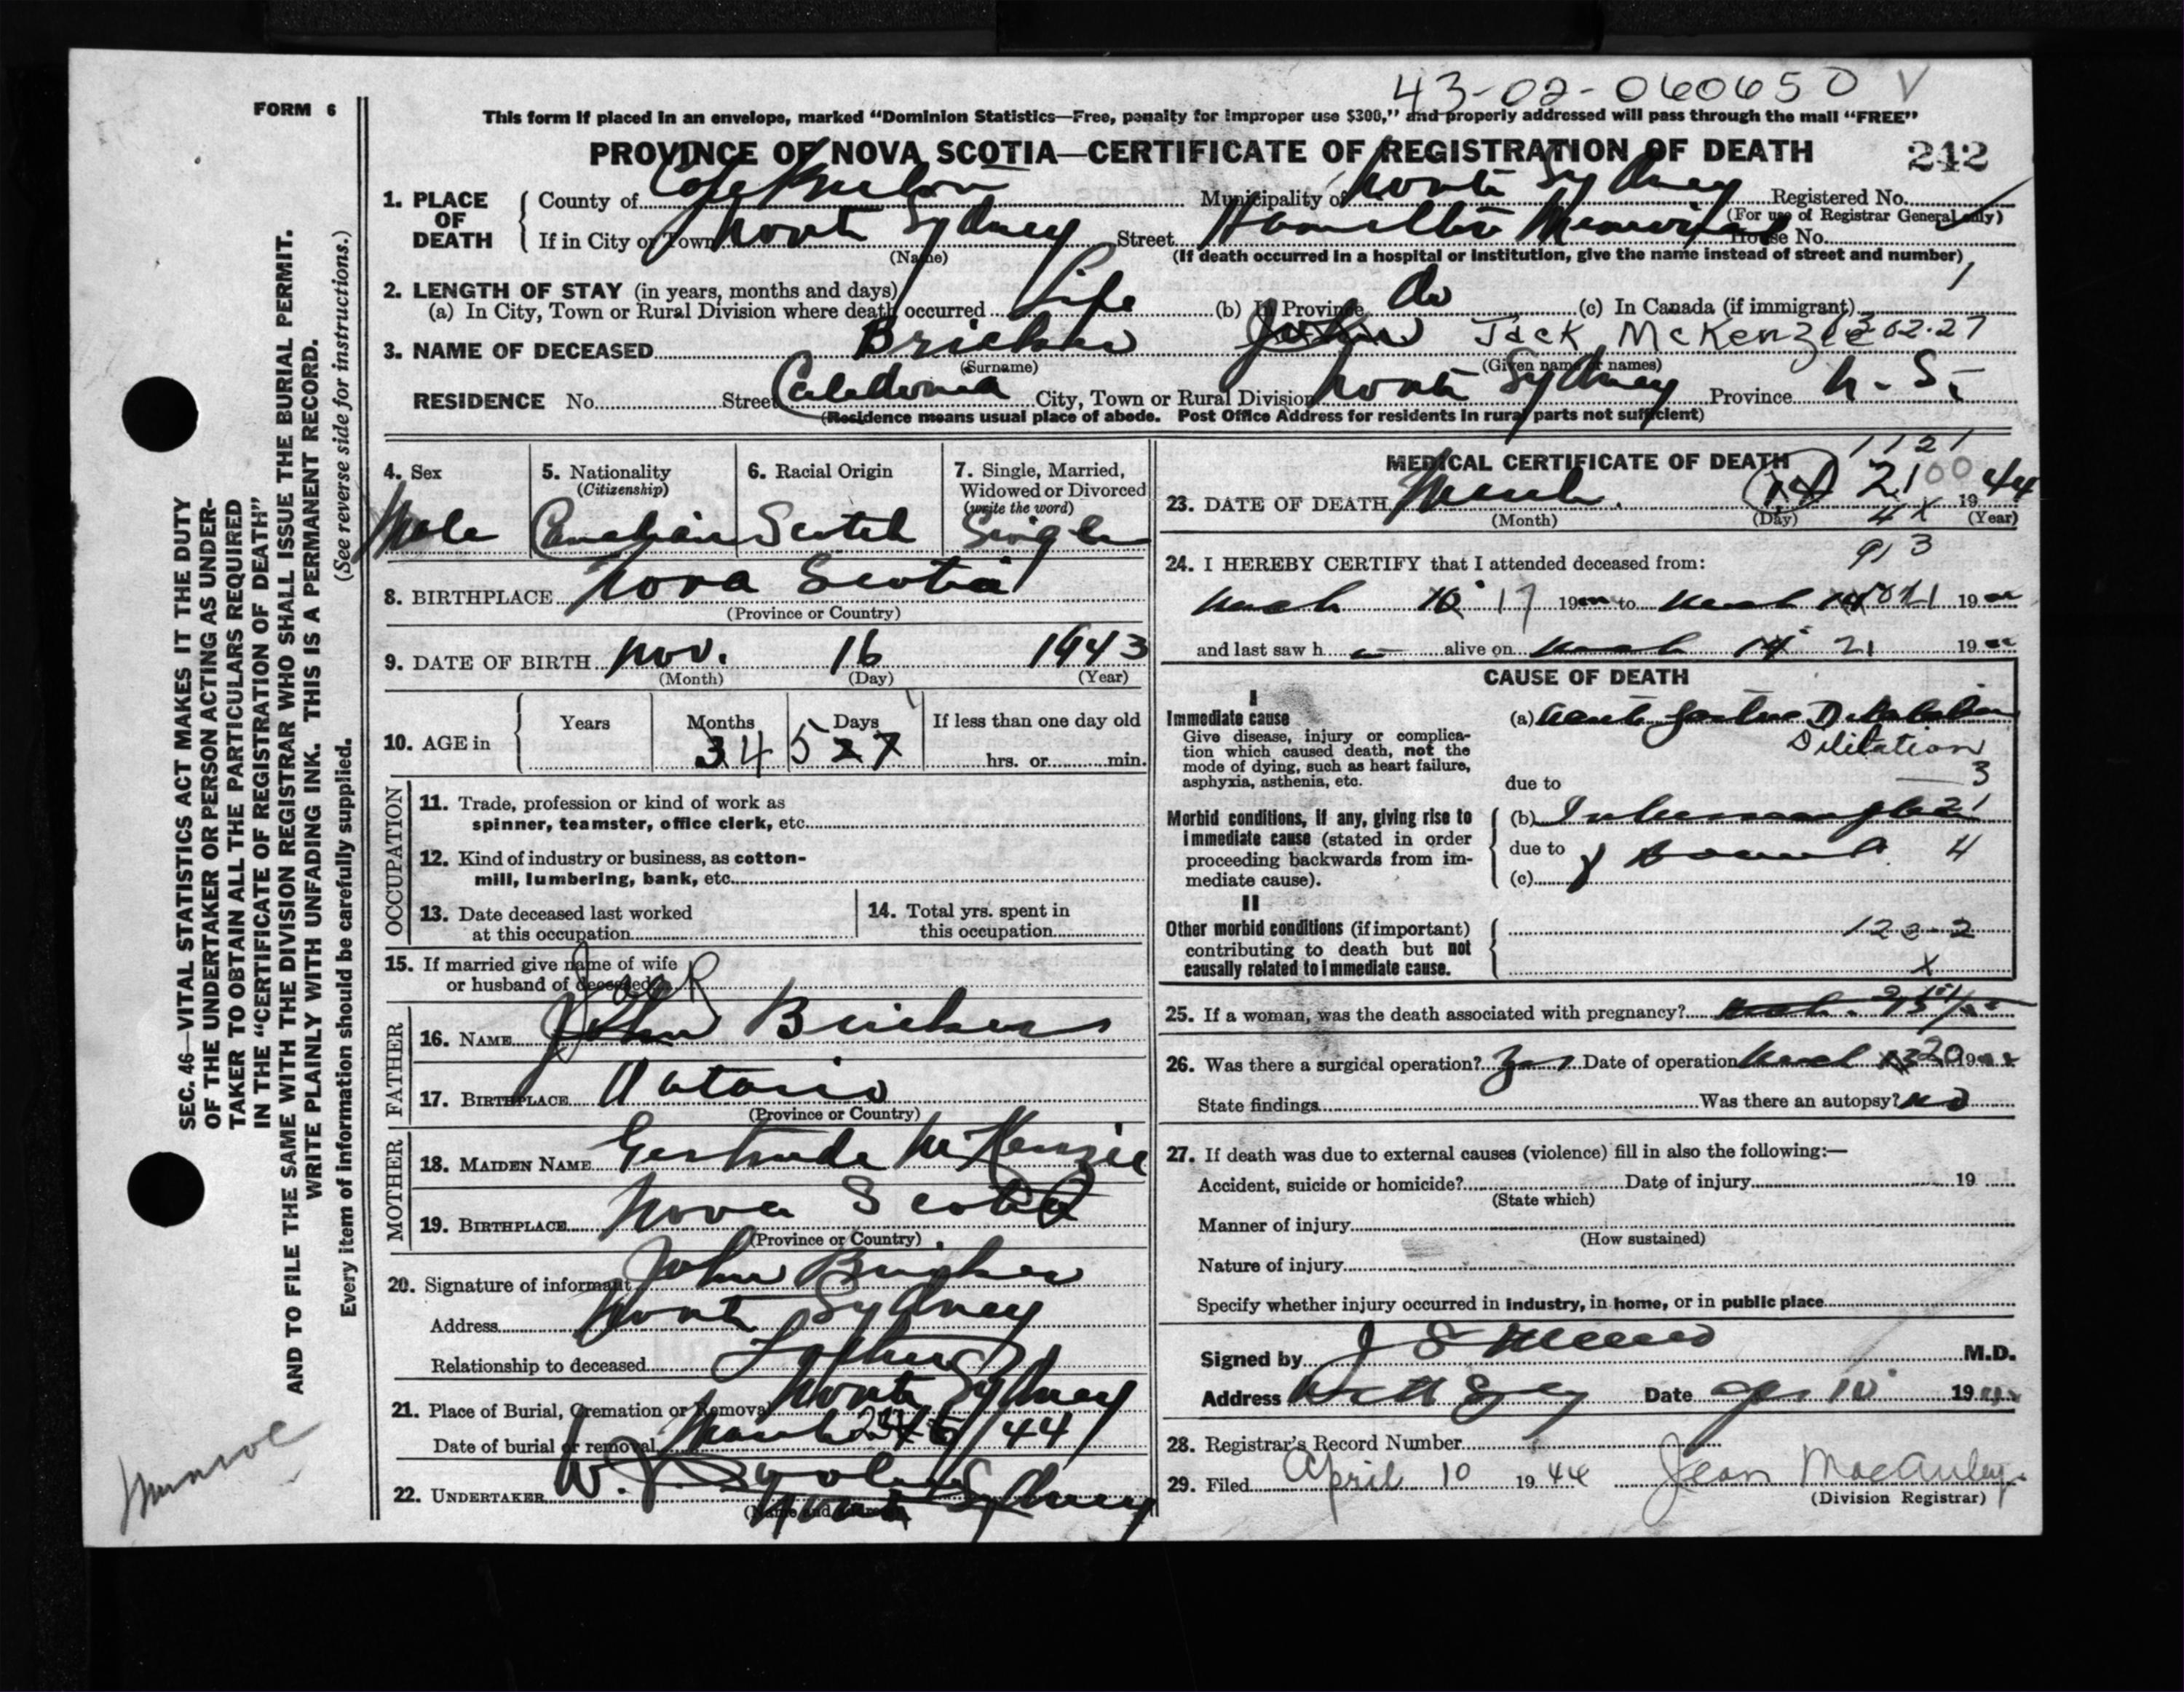 43-02-060650 V
FORM 6
This form if placed in an envelope, marked "Dominion Statistics—Free, penalty for improper use $300," and properly addressed will pass through the mail "FREE"
PROVINCE OF NOVA SCOTIA—CERTIFICATE OF REGISTRATION OF DEATH 242
1. PLACE OF DEATH County of Cape Breton Municipality of North Sydney Registered No.
(For use of Registrar General only)
If in City or Town North Sydney Street Hamilton Memorial House No.
(Name) (If death occurred in a hospital or institution, give the name instead of street and number)
2. LENGTH OF STAY (in years, months and days)
(a) In City, Town or Rural Division where death occurred Life (b) In Province do (c) In Canada (if immigrant) 1
3. NAME OF DECEASED Bricker John Jack McKenzie 302-27
(Surname) (Given name or names)
RESIDENCE No. Street Caledonia City, Town or Rural Division North Sydney Province N. S.
(Residence means usual place of abode. Post Office Address for residents in rural parts not sufficient)
4. Sex 5. Nationality (Citizenship) 6. Racial Origin 7. Single, Married, Widowed or Divorced (write the word)
Male Canadian Scotch Single
8. BIRTHPLACE Nova Scotia
(Province or Country)
9. DATE OF BIRTH Nov. 16 1943
(Month) (Day) (Year)
10. AGE in Years Months Days If less than one day old
3 4 5 27 hrs. or min.
OCCUPATION
11. Trade, profession or kind of work as spinner, teamster, office clerk, etc.
12. Kind of industry or business, as cotton-mill, lumbering, bank, etc.
13. Date deceased last worked at this occupation
14. Total yrs. spent in this occupation
15. If married give name of wife or husband of deceased
FATHER
16. NAME John Bricker
17. BIRTHPLACE Ontario
(Province or Country)
MOTHER
18. MAIDEN NAME Gertrude McKenzie
19. BIRTHPLACE Nova Scotia
(Province or Country)
20. Signature of informant John Bricker
Address North Sydney
Relationship to deceased Father
21. Place of Burial, Cremation or Removal North Sydney
Date of burial or removal March /44
22. UNDERTAKER W. J. North Sydney
(Name and address)
MEDICAL CERTIFICATE OF DEATH 1121
23. DATE OF DEATH March 14 21 00 1944
(Month) (Day) (Year)
4 X
913
24. I HEREBY CERTIFY that I attended deceased from:
March 17 19 to March 21 19
and last saw h alive on March 14 21 19
CAUSE OF DEATH
I
Immediate cause
Give disease, injury or complication which caused death, not the mode of dying, such as heart failure, asphyxia, asthenia, etc.
(a) Acute Gastric Dilatation
Dilitation
3
due to
Morbid conditions, if any, giving rise to immediate cause (stated in order proceeding backwards from immediate cause).
(b) Intussusception 21
due to of Bowel. 4
(c)
II
Other morbid conditions (if important) contributing to death but not causally related to immediate cause.
122-2
X
25. If a woman, was the death associated with pregnancy?
26. Was there a surgical operation? Yes Date of operation March 20 19
State findings Was there an autopsy? No
27. If death was due to external causes (violence) fill in also the following:—
Accident, suicide or homicide? Date of injury 19
(State which)
Manner of injury
(How sustained)
Nature of injury
Specify whether injury occurred in industry, in home, or in public place
Signed by M.D.
Address Date Apr 10 19
28. Registrar's Record Number
29. Filed April 10 1944 Jean MacAuley
(Division Registrar)
SEC. 46—VITAL STATISTICS ACT MAKES IT THE DUTY
OF THE UNDERTAKER OR PERSON ACTING AS UNDER-
TAKER TO OBTAIN ALL THE PARTICULARS REQUIRED
IN THE "CERTIFICATE OF REGISTRATION OF DEATH"
AND TO FILE THE SAME WITH THE DIVISION REGISTRAR WHO SHALL ISSUE THE BURIAL PERMIT.
WRITE PLAINLY WITH UNFADING INK. THIS IS A PERMANENT RECORD.
Every item of information should be carefully supplied. (See reverse side for instructions.)
Munroe